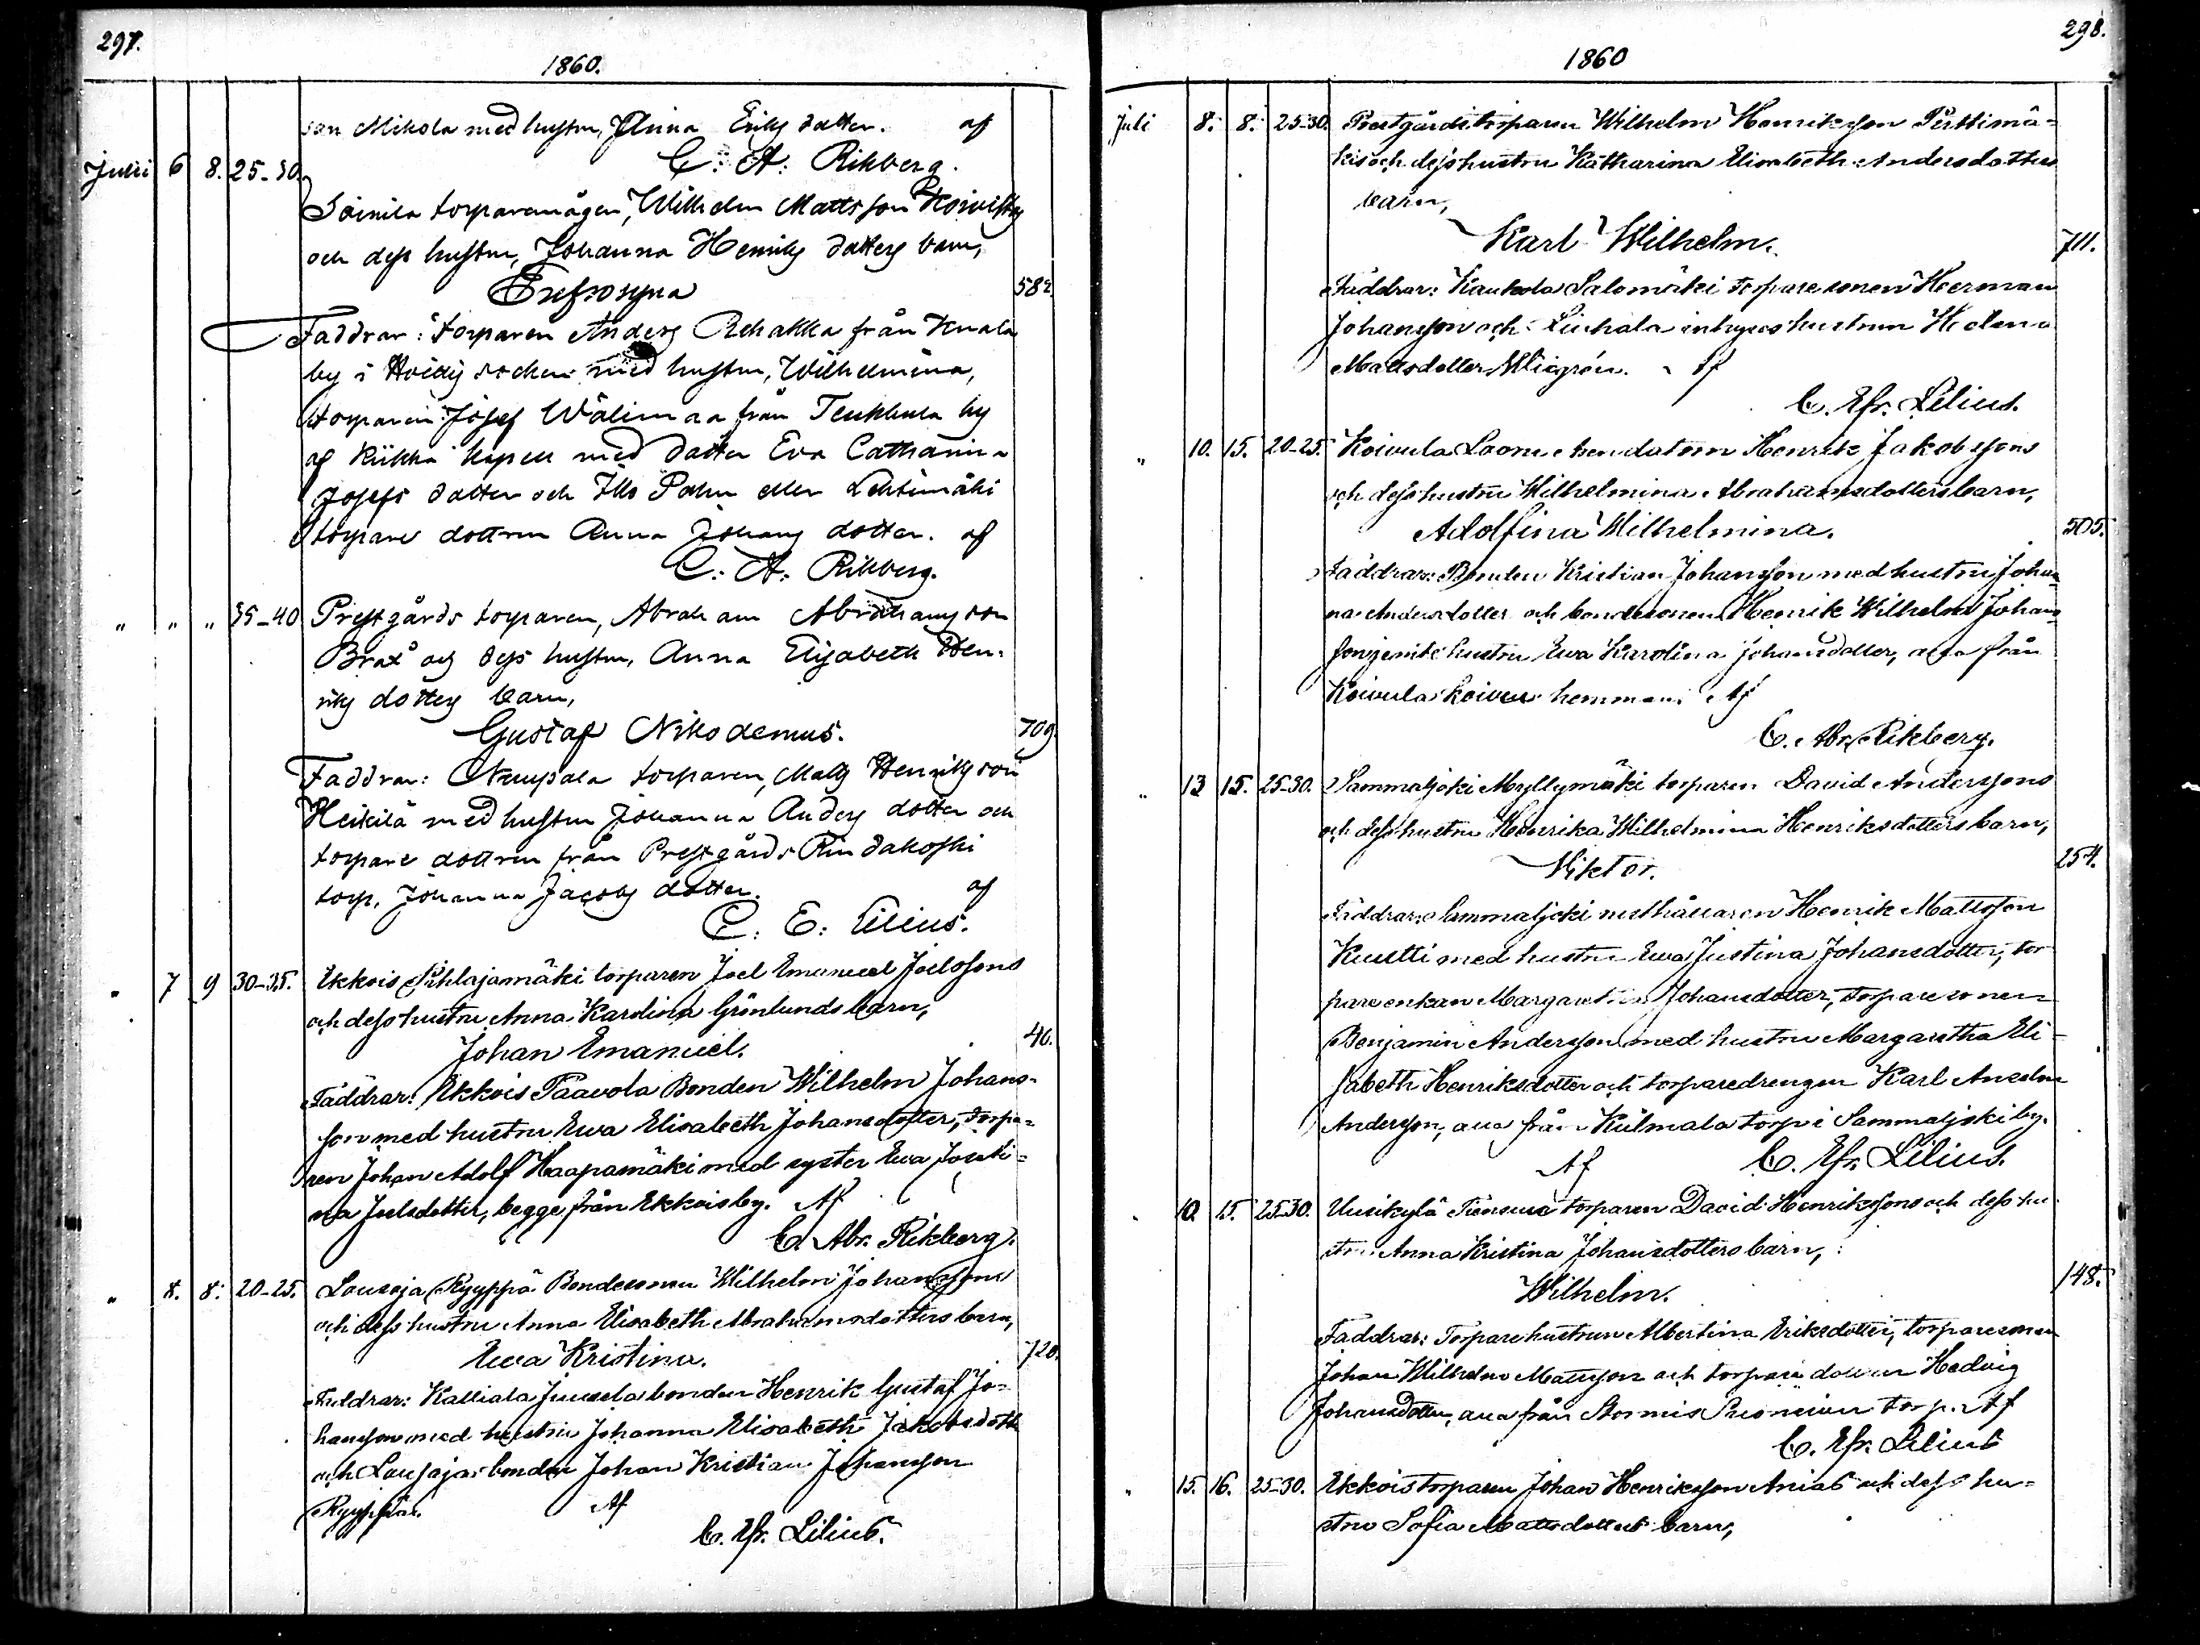 297.
1860.
son Mikola med hustru, Anna Eriks dotter. af
C: A: Rikberg.
Julii 6 8. 25-30.
Soinila torparemågen, Wilhelm Mattsson Koivisto
och dess hustru, Johanna Henriks dotters barn,
Eufrosyna 582
Faddrar: torparen Anders Rekakka från
by i Hvidis socken med hustru, Wilhelmina,
torparen Josef Wälimaa från by
af Kiikka kapell med dotter Eva Catharina
Josefs dotter och Illo Palın eller Lehtimäki
torpare dottren Anna Johans dotter. af
C: A: Rikberg.
" " " 35-40 Prestgårds torparen, Abraham Abrahams son
Brax och dess hustru, Anna Elisabeth Hen-
riks dotters barn,
Gustaf Nikodemus. 709
Faddrar: Nuupala torparen, Matts Henriks son
Heikilä med hustru Johanna Anders dotter och
torpare dottren från Prestgårds Rindakoski
torp, Johanna Jacobs dotter. af
C: E: Lilius.
" 7 9 30-35. Ekkois Pihlajamäki torparen Joel Emanuel Joelssons
och dess hustru Anna Karolina Grönlunds barn,
Johan Emanuel. 40.
Faddrar: Ekkois Paavola Bonden Wilhelm Johans-
son med hustru Ewa Elisabeth Johansdotter, torpa-
ren Johan Adolf Haapamäki med syster Ewa Justi-
na Joelsdotter, begge från Ekkois by. Af
C. Abr. Rikberg.
" 8. 8. 20-25. Lousaja Ryyppö Bondesonen Wilhelm Johanssons
och dess hustru Anna Elisabeth Abrahamsdotters barn,
Ewa Kristina. 720.
Faddrar: Kalliala Juusela bonden Henrik Gustaf Jo-
hansson med hustru Johanna Elisabeth Jakobsdott
och Lousaja bonden Johan Kristian Johansson
Ryyppö. Af
C. Efr. Lilius.
298.
1860
Juli 8. 8. 25-30. Prestgårdstorparen Wilhelm Henriksson Pirttimä-
kis och dess hustru Katharina Elisabeth Andersdotters
barn,
Karl Wilhelm. 711.
Faddrar: Kaukola Salomäki torparesonen Herman
Johansson och Liuhala inhyses hustrun Helena
Mattsdotter Af
C. Efr. Lilius.
" 10. 15. 20-25. Koivula Laoni Henrik Jakobssons
och dess hustru Wilhelmina Abrahamsdotters barn,
Adolfina Wilhelmina. 505.
Faddrar: Bonden Kristian Johansson med hustru Johan-
na Andersdotter och bondesonen Henrik Wilhelm Johans-
son jemte hustru Ewa Karolina Johansdotter, alla från
Koivula Koivu hemman. Af
C. Abr. Rikberg.
" 13 15. 25-30. Sammaljoki Myllymäki torparen David Anderssons
och dess hustru Henrika Wilhelmina Henriksdotters barn,
Viktor. 254.
Faddrar: Sammaljoki Henrik Mattsson
Kuutti med hustru Ewa Justina Johansdotter, tor-
pareenkan Margaretha Johansdotter, torparesonen
Benjamin Andersson med hustru Margaretha Eli-
sabeth Henriksdotter och torparedrengen Karl Anselm
Andersson, alla från Kulmala torp i Sammaljoki by.
Af C. Efr. Lilius.
" 10. 15. 25-30. Uusikylä torparen David Henrikssons och dess hu-
stru Anna Kristina Johansdotters barn,
Wilhelm. 148.
Faddrar: Torparehustrun Albertina Eriksdotter, torparesonen
Johan Wilhelm Mattsson och torpare dottren Hedvig
Johansdotter, alla från Stormis torp. Af
C. Efr. Lilius
" 15. 16. 25-30. Ekkois torparen Johan Henriksson Anias och dess hu-
stru Sofia Mattsdotters barn,